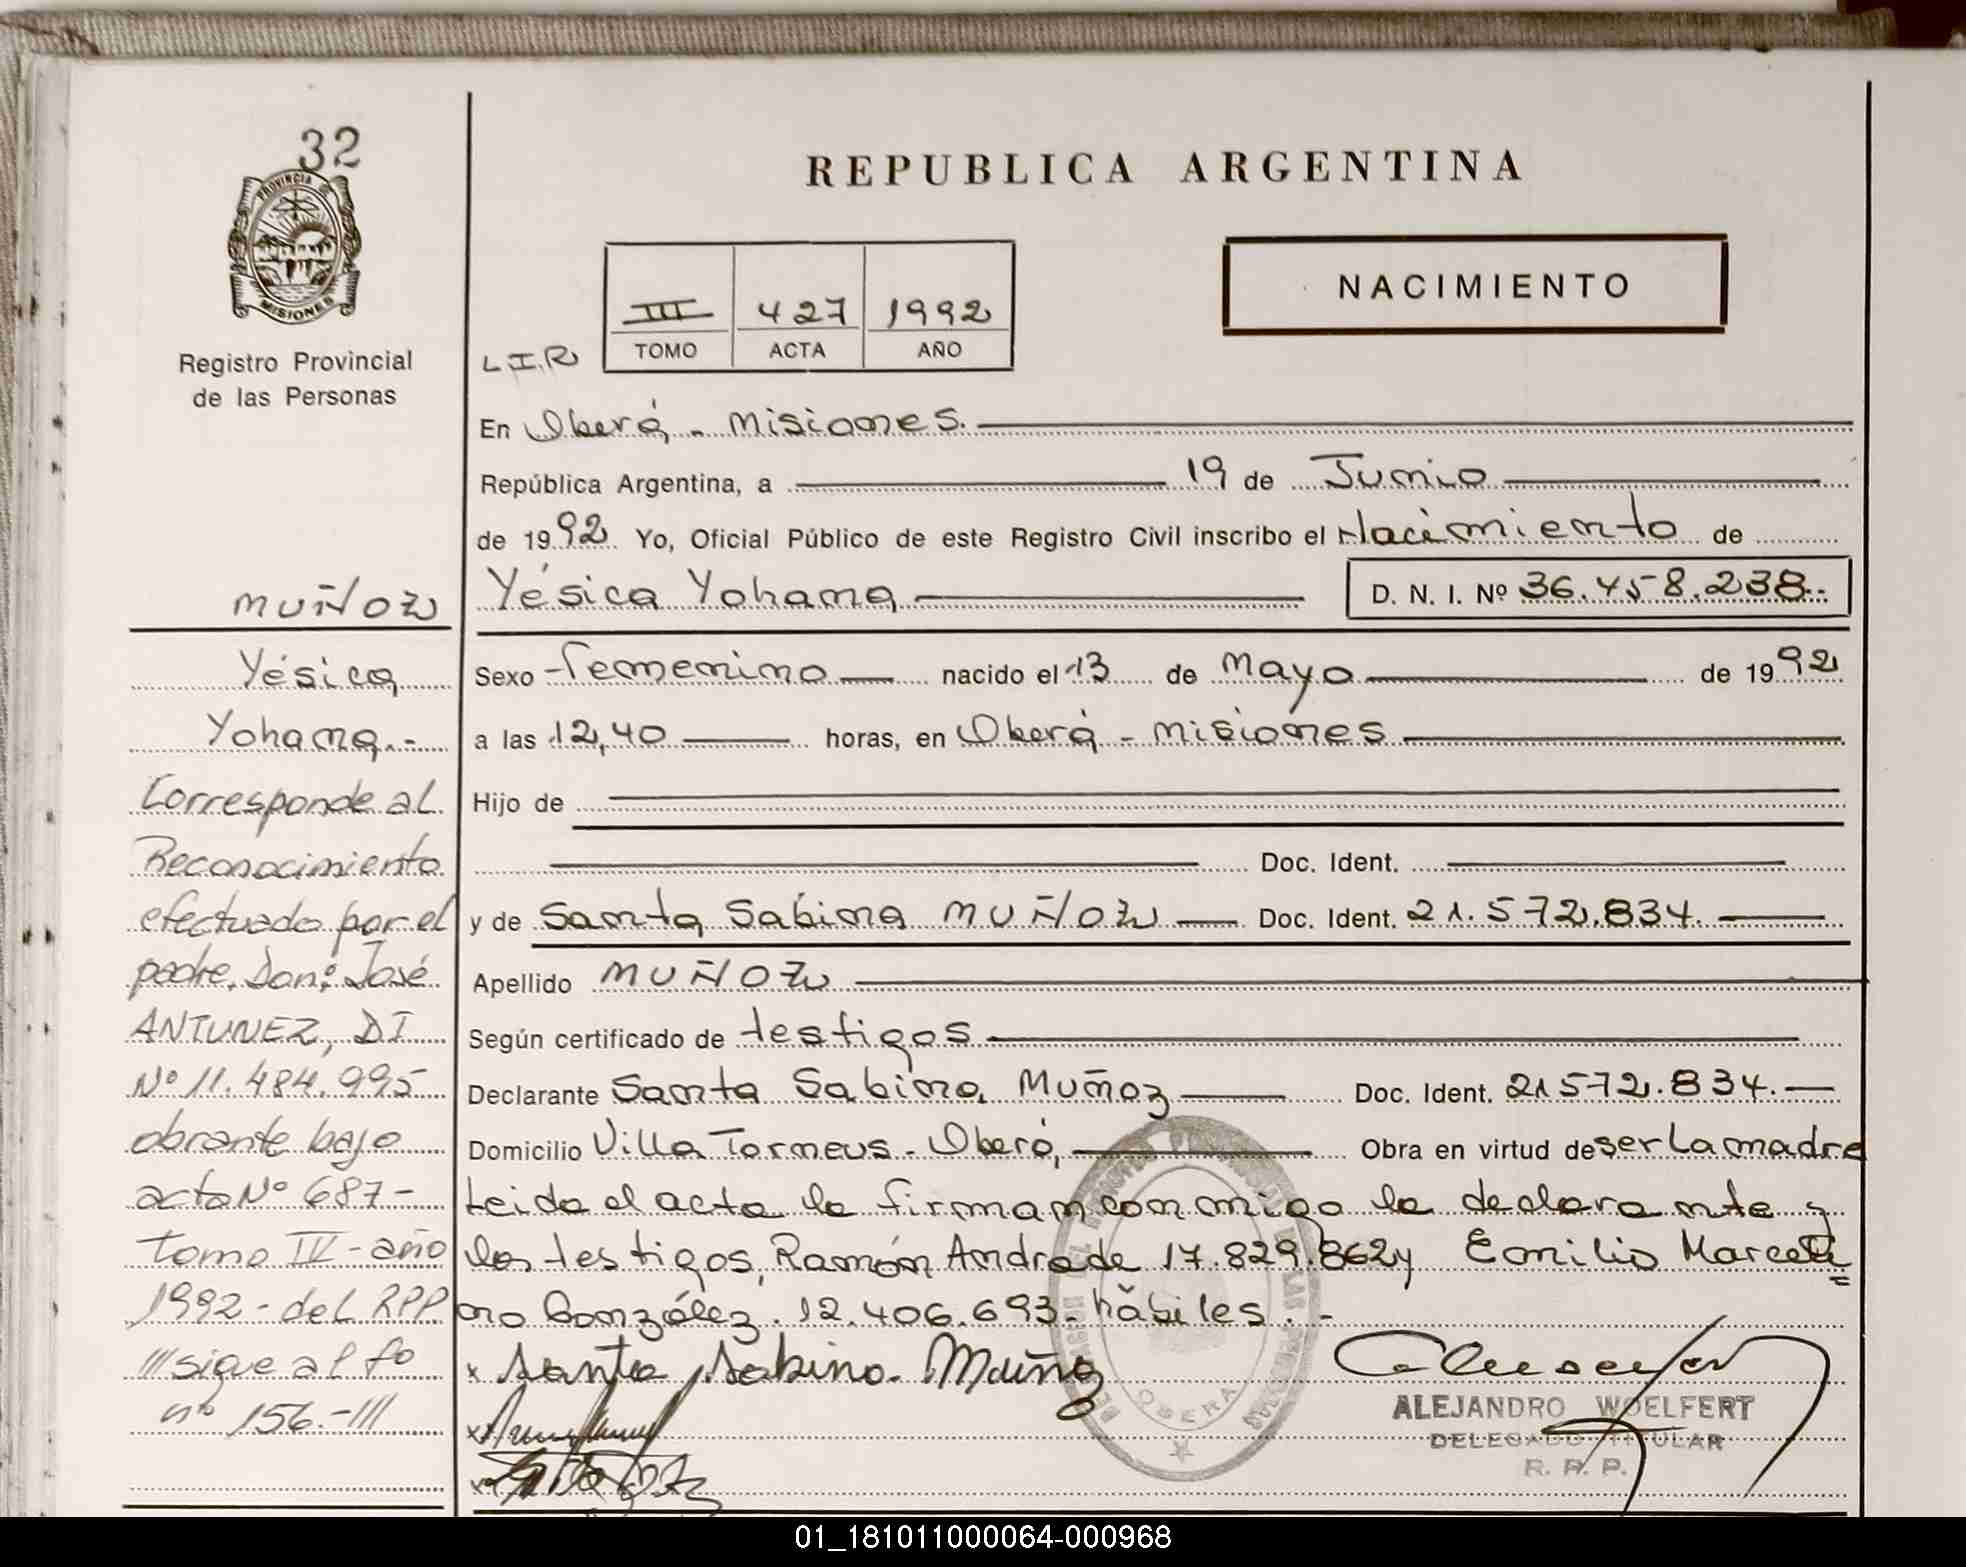 32
PROVINCIA
MISIONES
Registro Provincial
de las Personas
MUÑOZ
Yésica
Yohana.-
Corresponde al
Reconocimiento
efectuado por el
padre, Don: José
ANTUNEZ, DI
Nº 11.484.995
obrante bajo
acta Nº 687-
tomo IV - año
1992 - del RPP
///sigue al fo
nº 156.-///
REPUBLICA ARGENTINA
NACIMIENTO
III 427 1992
TOMO ACTA AÑO
L.I.R
En Oberá - Misiones.
República Argentina, a 19 de Junio
de 1992. Yo, Oficial Público de este Registro Civil inscribo el Nacimiento de
Yésica Yohana D. N. I. Nº 36.458.238.-
Sexo Femenino nacido el 13 de Mayo de 1992
a las 12,40 horas, en Oberá - Misiones
Hijo de
Doc. Ident.
y de Santa Sabina MUÑOZ Doc. Ident. 21.572.834.
Apellido MUÑOZ
Según certificado de testigos
Declarante Santa Sabina Muñoz Doc. Ident. 21572.834.
Domicilio Villa Torneus - Oberá, Obra en virtud de ser la madre
Leida el acta la firman conmigo la declarante y
los testigos, Ramón Andrade 17.829.862 y Emilio Marceli=
no González. 12.406.693. hábiles. -
x Santa Sabina Muñoz
x
x
OBERA
ALEJANDRO WOELFERT
DELEGADO TITULAR
R. P. P.
01_181011000064-000968